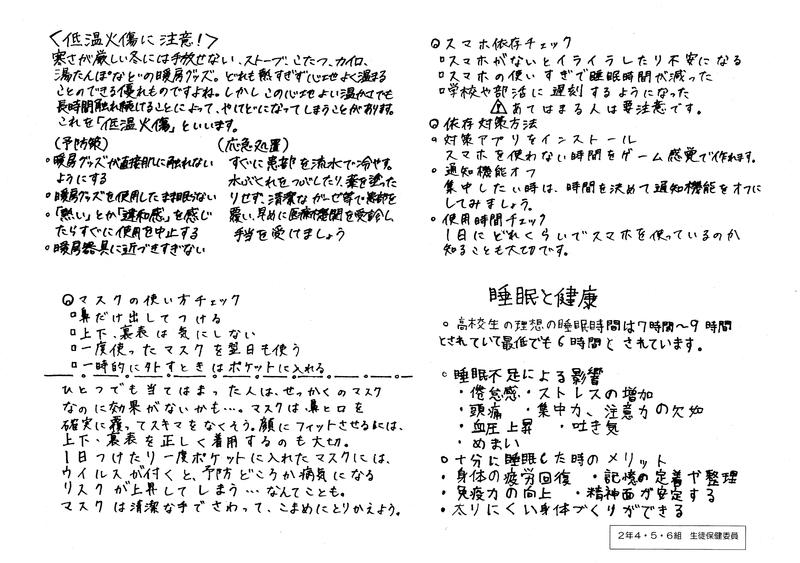 ＜低温火傷に注意！＞
寒さが厳しい冬には手放せない、ストーブ、こたつ、カイロ、
湯たんぽなどの暖房グッズ。どれも熱すぎず心地よく温まる
ことのできる優れものですよね。しかしこの心地よい温かさでも
長時間触れ続けることによって、やけどになってしまうことがあります。
これを「低温火傷」といいます。
(予防策)
○暖房グッズが直接肌に触れない
ようにする
○暖房グッズを使用したまま眠らない
○「熱い」とか「違和感」を感じ
たらすぐに使用を中止する
○暖房器具に近づきすぎない
(応急処置)
すぐに患部を流水で冷やす。
水ぶくれをつぶしたり、薬を塗った
りせず、清潔なガーゼ等で患部を
覆い、早めに医療機関を受診し、
手当を受けましょう
◎スマホ依存チェック
□スマホがないとイライラしたり不安になる
□スマホの使いすぎで睡眠時間が減った
□学校や部活に遅刻するようになった
⚠あてはまる人は要注意です。
◎依存対策方法
○対策アプリをインストール
スマホを使わない時間をゲーム感覚で作れます。
○通知機能オフ
集中したい時は、時間を決めて通知機能をオフに
してみましょう。
○使用時間チェック
1日にどれくらいでスマホを使っているのか
知ることも大切です。
◎マスクの使い方チェック
□鼻だけ出してつける
□上下、裏表は気にしない
□一度使ったマスクを翌日も使う
□一時的に外すときはポケットに入れる
ひとつでも当てはまった人は、せっかくのマスク
なのに効果がないかも…。マスクは、鼻と口を
確実に覆ってスキマをなくそう。顔にフィットさせるには、
上下、裏表を正しく着用するのも大切。
1日つけたり一度ポケットに入れたマスクには、
ウイルスが付くと、予防どころか病気になる
リスクが上昇してしまう…なんてことも。
マスクは清潔な手でさわって、こまめにとりかえよう。
睡眠と健康
○高校生の理想の睡眠時間は7時間～9時間
とされていて最低でも6時間とされています。
○睡眠不足による影響
・倦怠感・ストレスの増加
・頭痛・集中力、注意力の欠如
・血圧上昇・吐き気
・めまい
○十分に睡眠した時のメリット
・身体の疲労回復・記憶の定着や整理
・免疫力の向上・精神面が安定する
・太りにくい身体づくりができる
2年4・5・6組 生徒保健委員